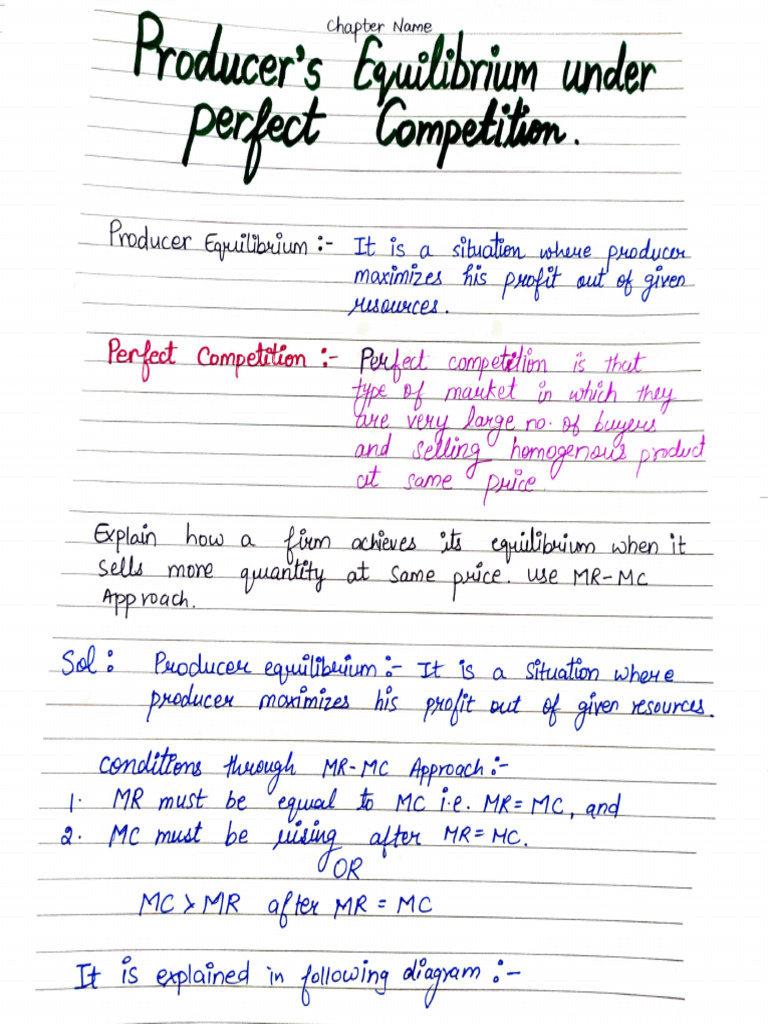 Chapter Name
Producer's Equilibrium under
perfect Competition.
Producer Equilibrium :- It is a situation where producer
maximizes his profit out of given
resources.
Perfect Competition :- Perfect competition is that
type of market in which they
are very large no. of buyers
and selling homogenous product
at same price.
Explain how a firm achieves its equilibrium when it
sells more quantity at same price. use MR-MC
Approach.
Sol: Producer equilibrium :- It is a situation where
producer maximizes his profit out of given resources.
conditions through MR-MC Approach :-
1. MR must be equal to MC i.e. MR = MC, and
2. MC must be rising after MR = MC.
OR
MC > MR after MR = MC
It is explained in following diagram :-